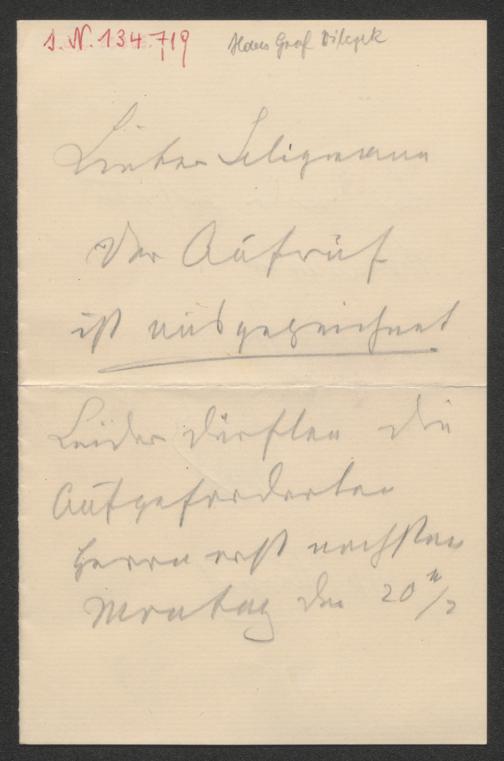 J. N. 134.719
Hans Graf Wilczek
Lieber Seligmann
Der Aufruf
ist ausgezeichnet
Leider dürften die
Aufgeforderten
Herrn erst nächsten
Montag den 20ⁿ/2